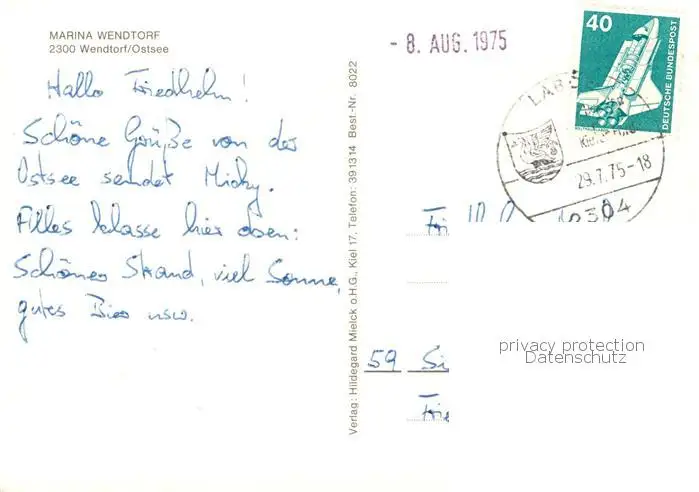 MARINA WENDTORF
2300 Wendtorf/Ostsee
- 8. AUG. 1975
40
DEUTSCHE BUNDESPOST
Hallo Friedhelm!
Schöne Grüße von der
Ostsee sendet Micky.
Alles klasse hier oben:
Schöner Strand, viel Sonne,
gutes Bier usw.
Verlag: Hildegard Mielck o.H.G., Kiel 17, Telefon: 391314 Best.-Nr. 8022
LAB
29.7.75-18
2304
59 Si
privacy protection
Datenschutz